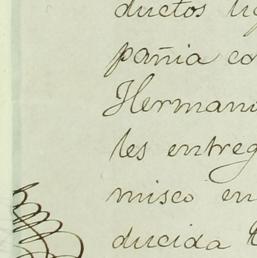 ductos
pañia co
Herman
les entreg
misco en
ducida